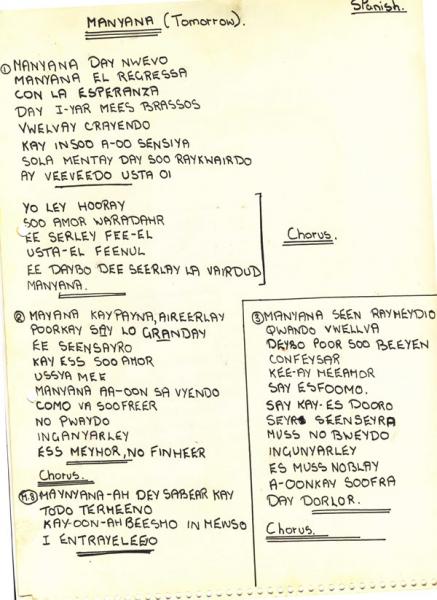 Spanish.
MANYANA (Tomorrow).
① MANYANA DAY NWEVO
MANYANA EL REGRESSA
CON LA ESPERANZA
DAY I-YAR MEES BRASSOS
VWELVAY CRAYENDO
KAY INSOO A-OO SENSIYA
SOLA MENTAY DAY SOO RAYKWAIRDO
AY VEEVEEDO USTA OI
YO LEY HOORAY
SOO AMOR WARADAHR
EE SERLEY FEE-EL
USTA-EL FEENUL
EE DAYBO DEE SEERLAY LA VAIRDUD
MANYANA.
Chorus.
② MAYANA KAY PAYNA, AIREERLAY
POORKAY SAY LO GRANDAY
EE SEENSAYRO
KAY ESS SOO AMOR
USSYA MEE
MANYANA AA-OON SA VYENDO
COMO VA SOOFREER
NO PWAYDO
INGANYARLEY
ESS MEYHOR, NO FINHEER
Chorus.
M.8 MAYNYANA-AH DEY SABEAR KAY
TODO TERMEENO
KAY-OON-AH BEESMO IN MENSO
I ENTRAYELEEO
③ MANYANA SEEN RAYMEYDIO
QWANDO VWELLVA
DEYBO POOR SOO BEEYEN
CONFEYSAR
KEE-AY MEEAMOR
SAY ESFOOMO.
SAY KAY-ES DOORO
SEYR SEENSEYRA
MUSS NO BWEYDO
INGUNYARLEY
ES MUSS NOBLAY
A-OONKAY SOOFRA
DAY DORLOR.
Chorus.